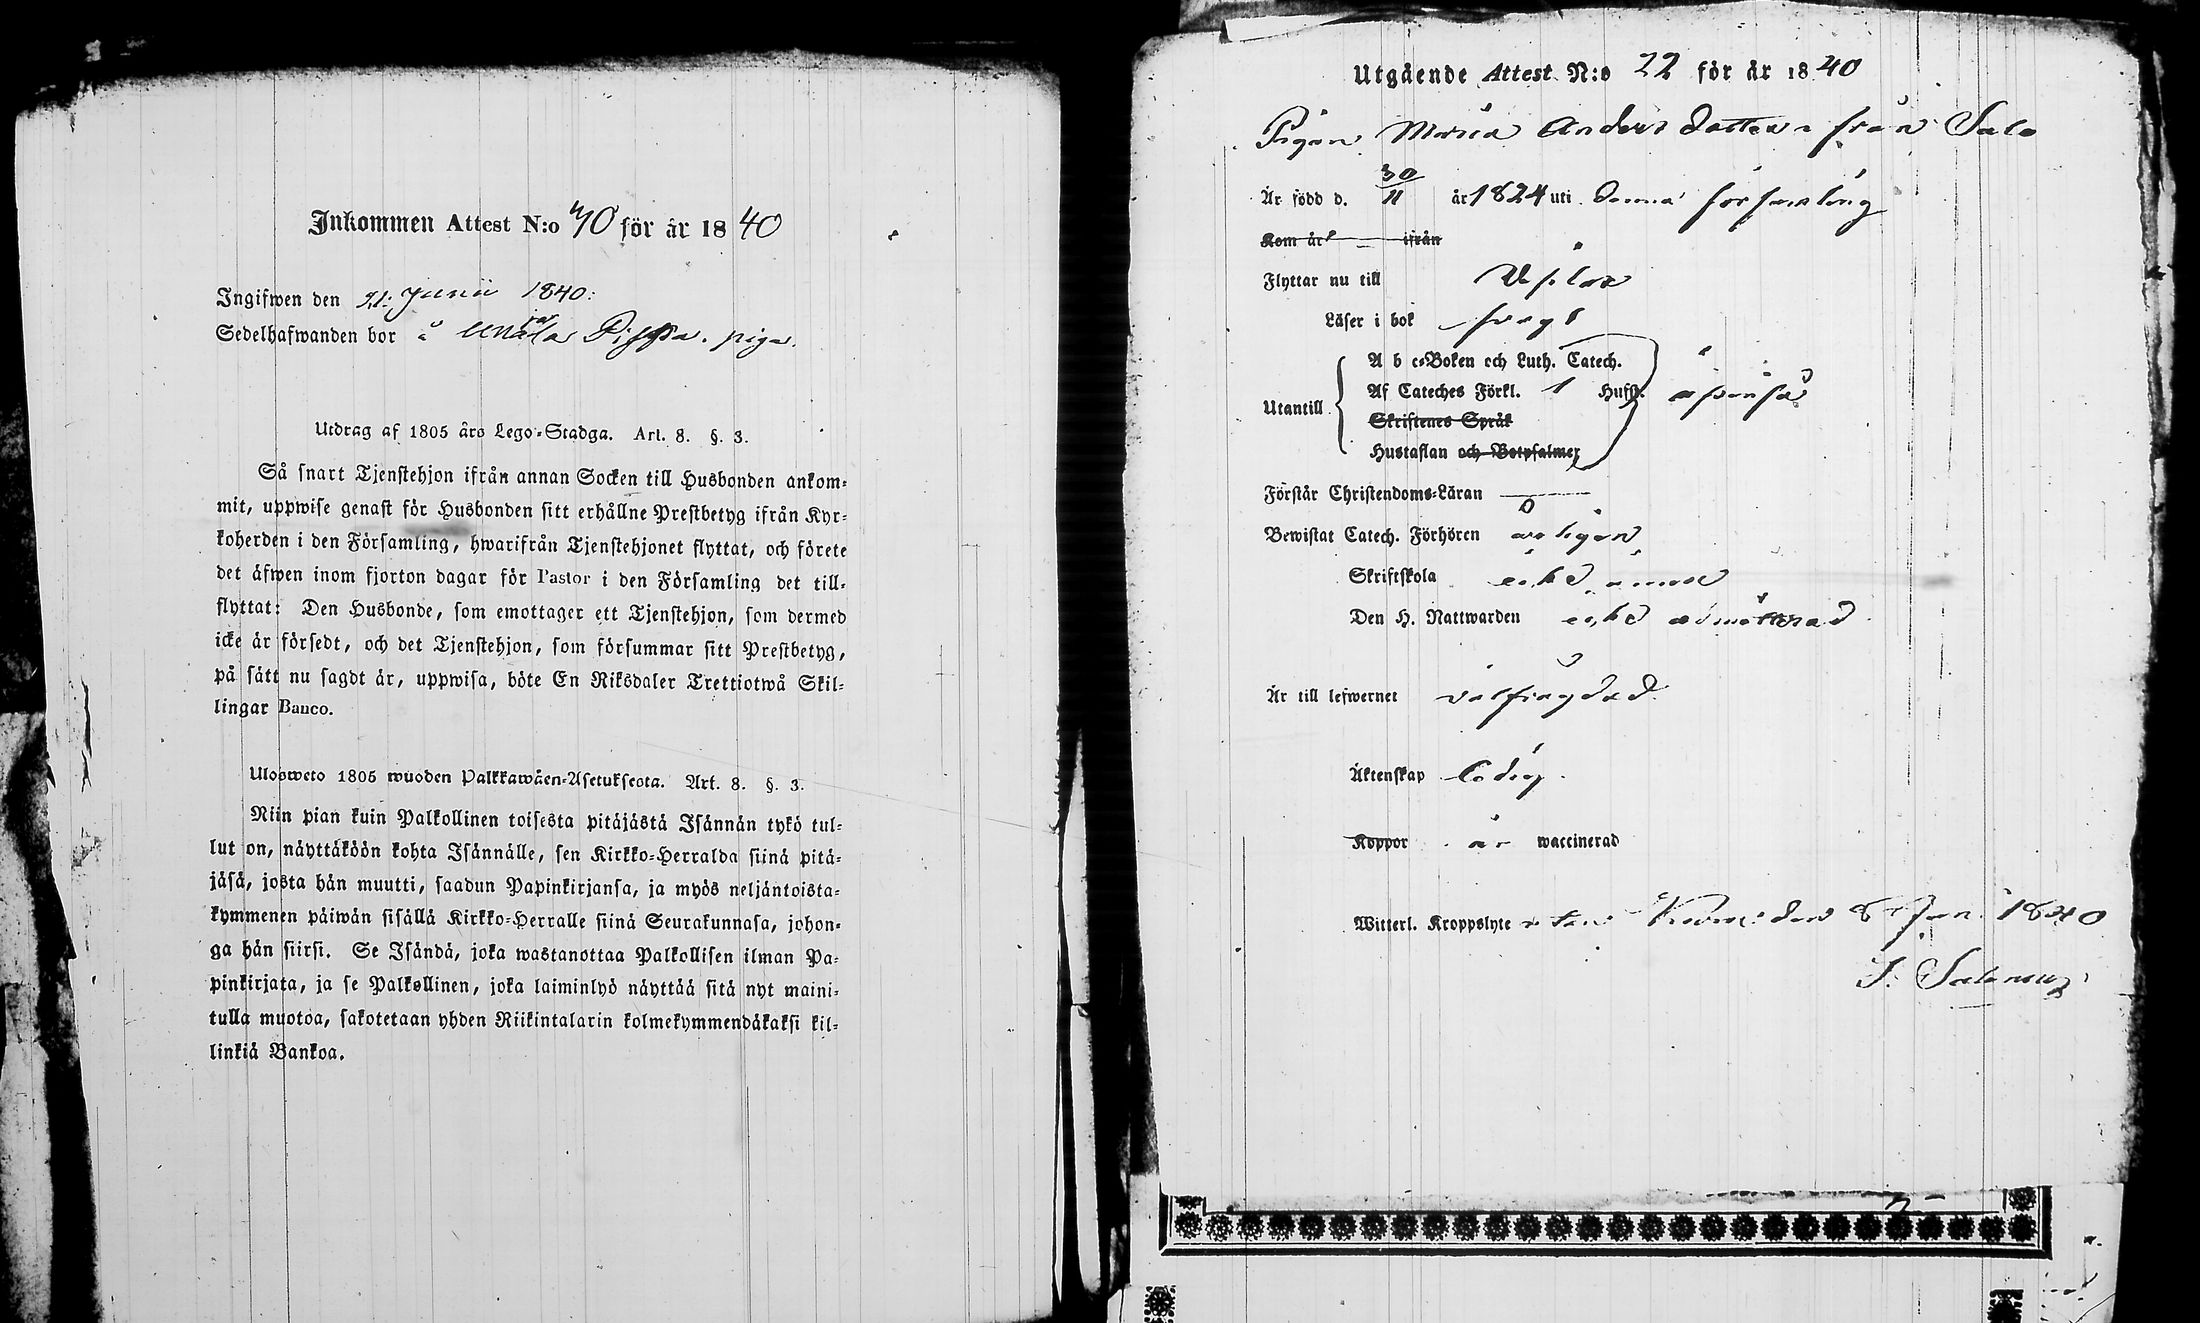 Inkommen Attest N:o 70 för år 1840
Ingifwen den 21. Junii 1840.
Sedelhafwanden bor å piga.
Utdrag af 1805 års Lego-Stadga. Art. 8. §. 3.
Så snart Tjenstehjon ifrån annan Socken till Husbonden ankom-
mit, uppwise genast för Husbonden sitt erhållne Prestbetyg ifrån Kyr-
koherden i den Församling, hwarifrån Tjenstehjonet flyttat, och förete
det äfwen inom fjorton dagar för Pastor i den Församling det till-
flyttat: Den Husbonde, som emottager ett Tjenstehjon, som dermed
icke är försedt, och det Tjenstehjon, som försummar sitt Prestbetyg,
på sätt nu sagdt är, uppwisa, böte En Riksdaler Trettiotwå Skil-
lingar Banco.
Ulosweto 1805 wuoden Palkkawäen-Asetuksesta. Art. 8. §. 3.
Niin pian kuin Palkollinen toisesta pitäjästä Isännän tykö tul-
lut on, näyttäköön kohta Isännälle, sen Kirkko-Herralda siinä pitä-
jäsä, josta hän muutti, saadun Papinkirjansa, ja myös neljäntoista-
kymmenen päiwän sisällä Kirkko-Herralle siinä Seurakunnasa, johon-
ga hän siirsi. Se Isändä, joka wastanottaa Palkollisen ilman Pa-
pinkirjata, ja se Palkollinen, joka laiminlyö näyttää sitä nyt maini-
tulla muotoa, sakotetaan yhden Riikintalarin kolmekymmendäkaksi kil-
linkiä Bankoa.
Utgående Attest N:o 22 för år 1840
Pigan Maria Anders dotter från Salo
Är född d. 30/11 år 1824 uti denna församling
Kom år ifrån
Flyttar nu till
Läser i bok svagt
A b c-Boken och Luth. Catech.
Af Cateches Förkl. 1 Hufst.
Utantill
Skriftenes Språk
Hustaflan och Botpsalmer
Förstår Christendoms-Läran
Bewistat Catech. Förhören årligen
Skriftskola ännu
Den H. Nattwarden admitterad
Är till lefwernet välfrägdad
Äktenskap ledig
Koppor är waccinerad
Witterl. Kroppslyte utan den 8 Jan. 1840
J. Salenius